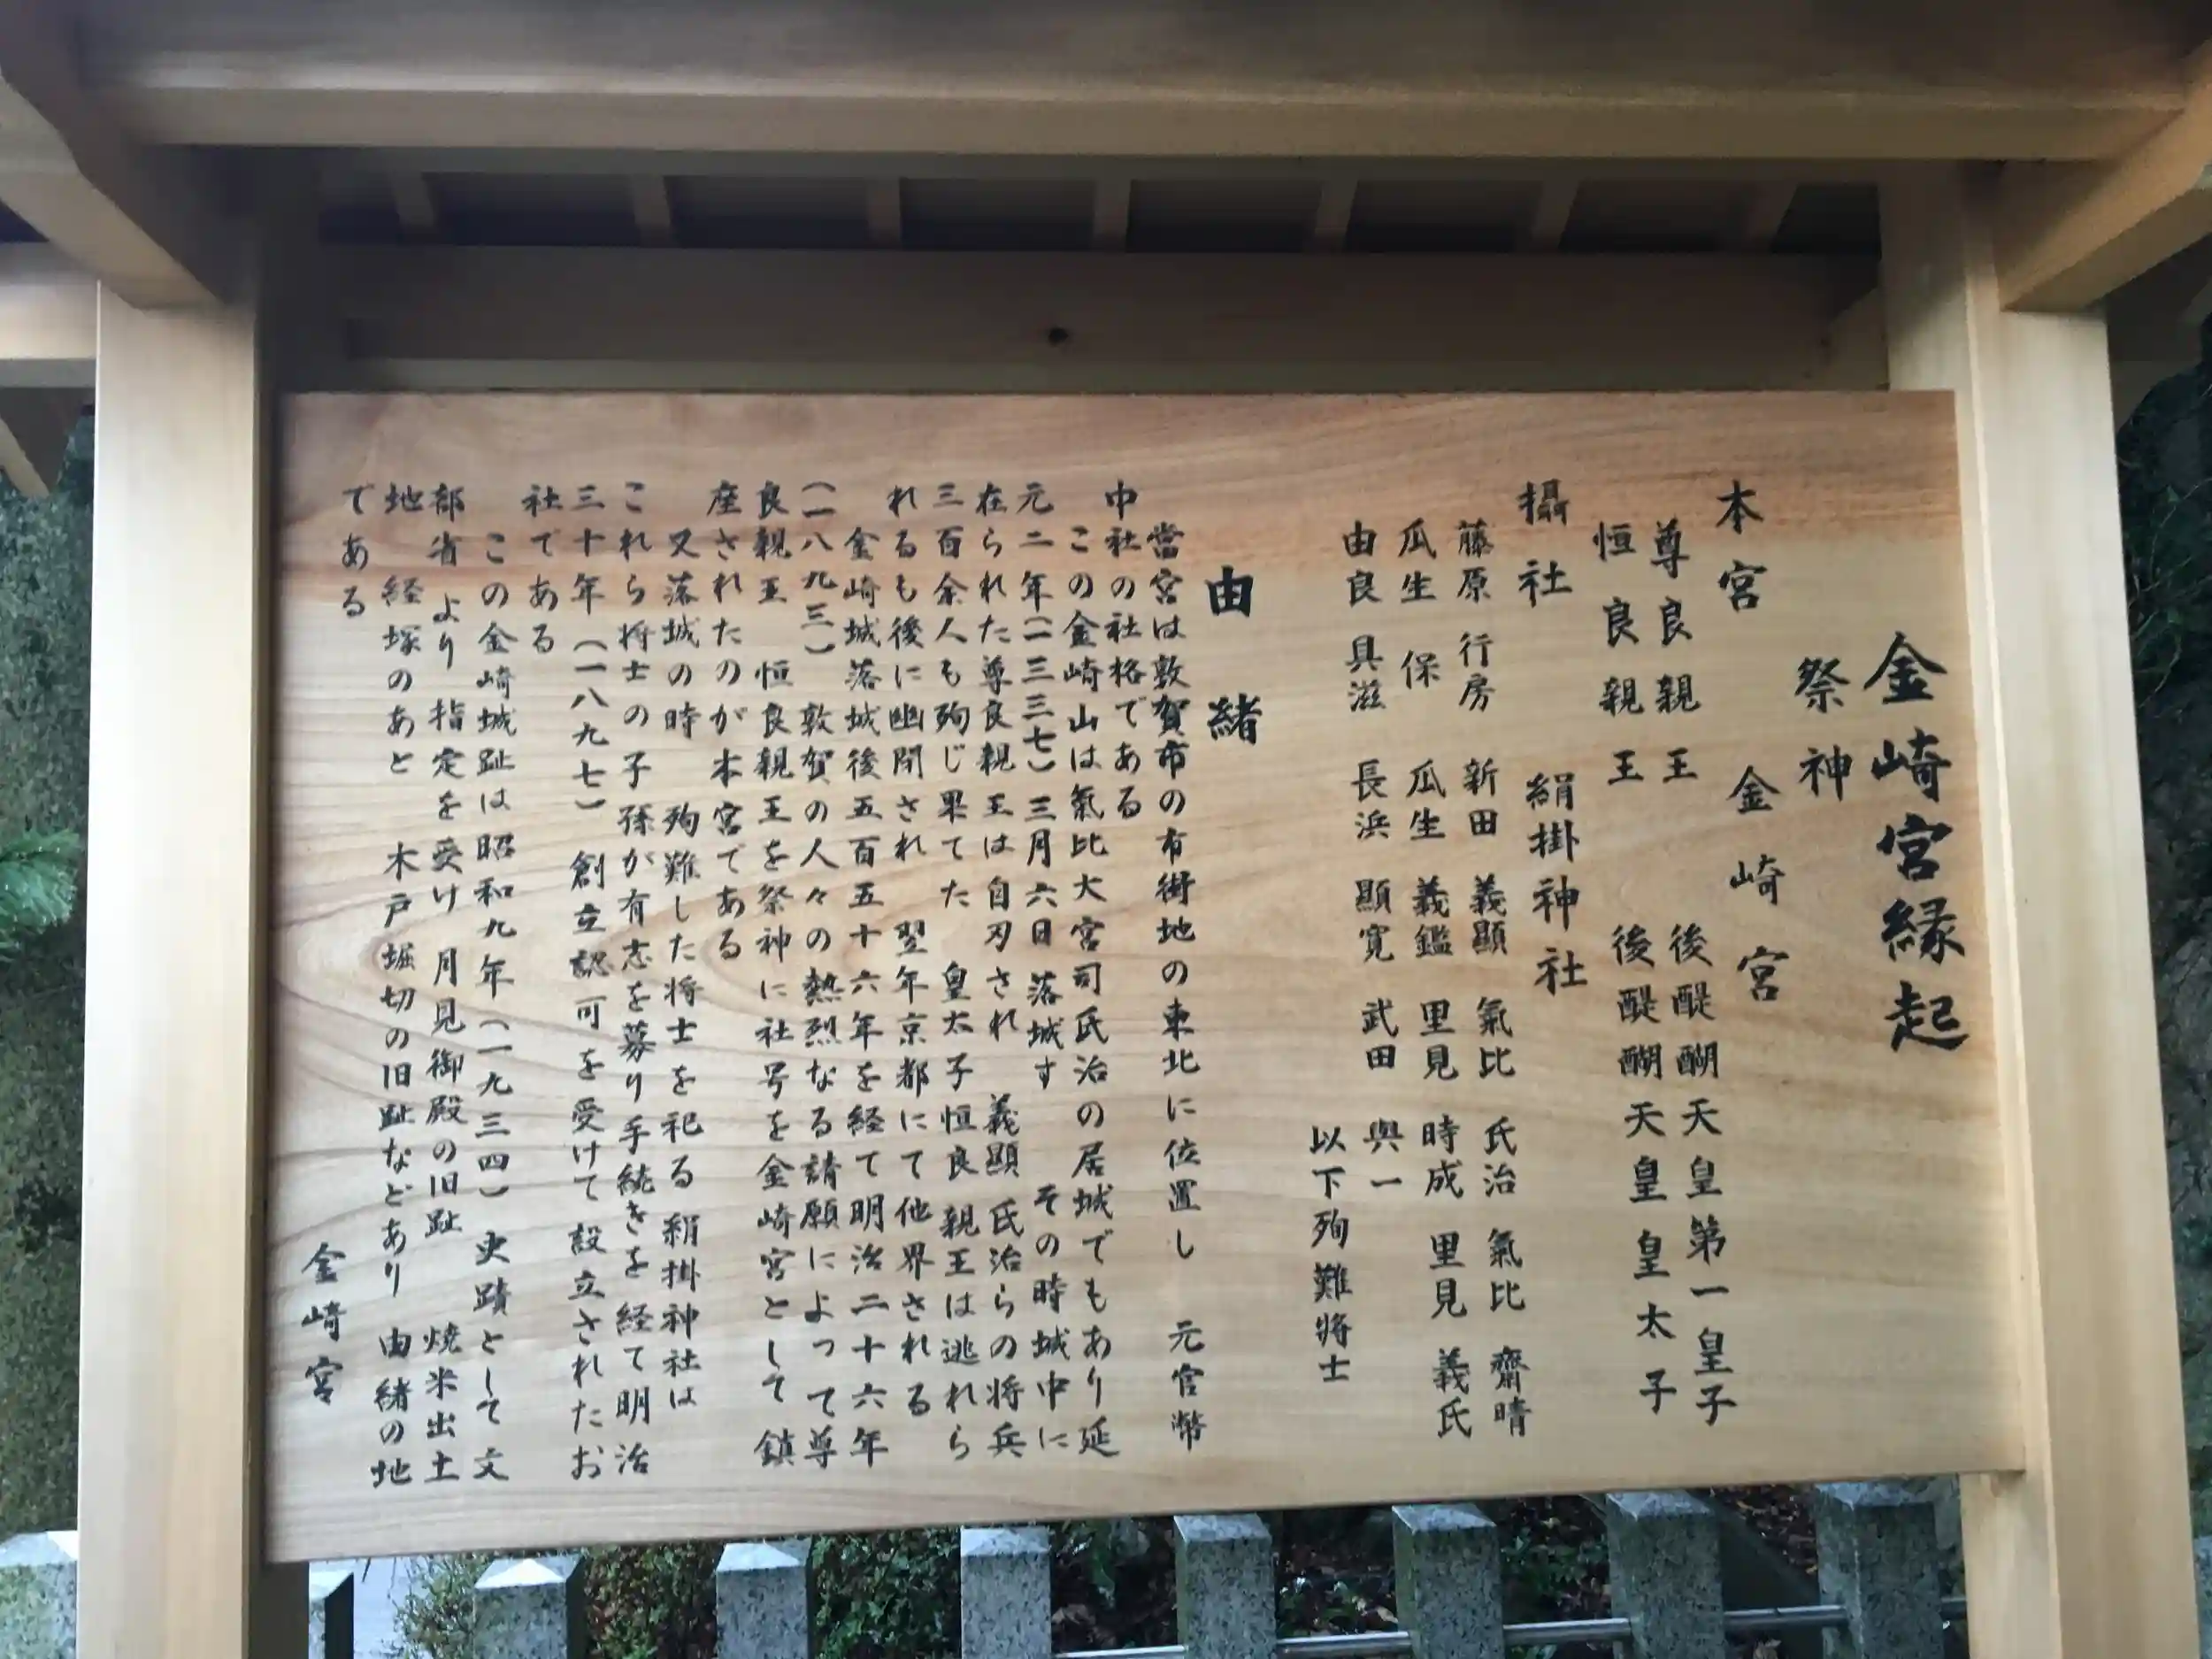 金崎宮縁起
祭神
本宮 金崎宮
尊良親王 後醍醐天皇第一皇子
恒良親王 後醍醐天皇皇太子
攝社 絹掛神社
藤原 行房 新田 義顯 氣比 氏治 氣比 齋晴
瓜生 保 瓜生 義鑑 里見 時成 里見 義氏
由良 具滋 長浜 顯寛 武田 與一
以下殉難將士
由緒
當宮は敦賀市の市街地の東北に位置し 元官幣
中社の社格である
この金崎山は氣比大宮司氏治の居城でもあり延
元二年(一三三七)三月六日 落城す その時城中に
在られた尊良親王は自刃され 義顯 氏治らの将兵
三百余人も殉じ果てた 皇太子恒良親王は逃れら
れるも後に幽閉され 翌年京都にて他界される
金崎城落城後五百五十六年を経て明治二十六年
(一八九三) 敦賀の人々の熱烈なる請願によって尊
良親王 恒良親王を祭神に社号を金崎宮として鎮
座されたのが本宮である
又落城の時 殉難した将士を祀る絹掛神社は
これら将士の子孫が有志を募り手続きを経て明治
三十年(一八九七) 創立認可を受けて設立されたお
社である
この金崎城趾は昭和九年(一九三四) 史蹟として文
部省より指定を受け 月見御殿の旧趾 焼米出土
地 経塚のあと 木戸堀切の旧趾などあり 由緒の地
である
金崎宮